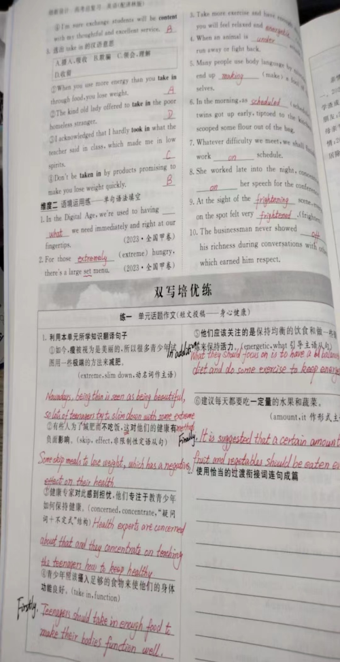 ①I'm sure exchange students will be content
with my thoughtful and excellent service. A
4. 选出 take in 的汉语意思
A.摄入,吸收 B.欺骗 C.领会,理解
D.收留
①When you use more energy than you take in
through food, you lose weight. A
②The kind old lady offered to take in the poor
homeless stranger. D
③I acknowledged that I hardly took in what the
teacher said in class, which made me in low
spirits. C
④Don't be taken in by products promising to
make you lose weight quickly. B
维度二 语境运用练——单句语法填空
1. In the Digital Age, we're used to having
what we need immediately and right at our
fingertips. (2023·全国甲卷)
2. For those extremely (extreme) hungry,
there's a large set menu. (2023·全国甲卷)
3. Take more exercise and have
you will feel relaxed and energetic
4. When an animal is under
run away or fight back.
5. Many people use body language
end up making (make) a
selves.
6. In the morning, as scheduled
twins got up early, tiptoed to the
scooped some flour out of the bag.
7. Whatever difficulty we meet, we shall
work on schedule.
8. She worked late into the night,
on her speech for the
9. At the sight of the frightening scene,
on the spot felt very frightened
10. The businessman never showed
his richness during conversations with
which earned him respect.
双写培优练
练一 单元话题作文(社文拔稿——身心健康)
1. 利用本单元所学知识翻译句子
①如今,瘦被视为是美丽的,所以很多青少年试
图用一些极端的方法来减肥。
(extreme, slim down, 动名词作主语)
Nowadays, being thin is seen as being beautiful,
so lots of teenagers try to slim down with some extreme
methods
②有些人为了减肥而不吃饭,这对他们的健康有
负面影响。(skip, effect, 非限制性定语从句)
Some skip meals to lose weight, which has a negative
effect on their health
③健康专家对此感到担忧,他们专注于教育青少年
如何保持健康。(concerned, concentrate, “疑问
词+不定式”结构) Health experts are concerned
about that and they concentrate on teaching
the teenagers how to keep healthy
④青少年应该摄入足够的食物来使他们的身体
功能良好。(take in, function)
Firstly, Teenagers should take in enough food to
make their bodies function well.
⑤他们应该关注的是保持均衡的饮食和做一些
来保持活力。(energetic, what 引导主语从句)
In addition what they should focus on is to have a balanced
diet and do some exercise to keep energetic
⑥建议每天都要吃一定量的水果和蔬菜。
(amount, it 作形式主
Finally, It is suggested that a certain amount
fruit and vegetables should be eaten
使用恰当的过渡衔接词连句成篇